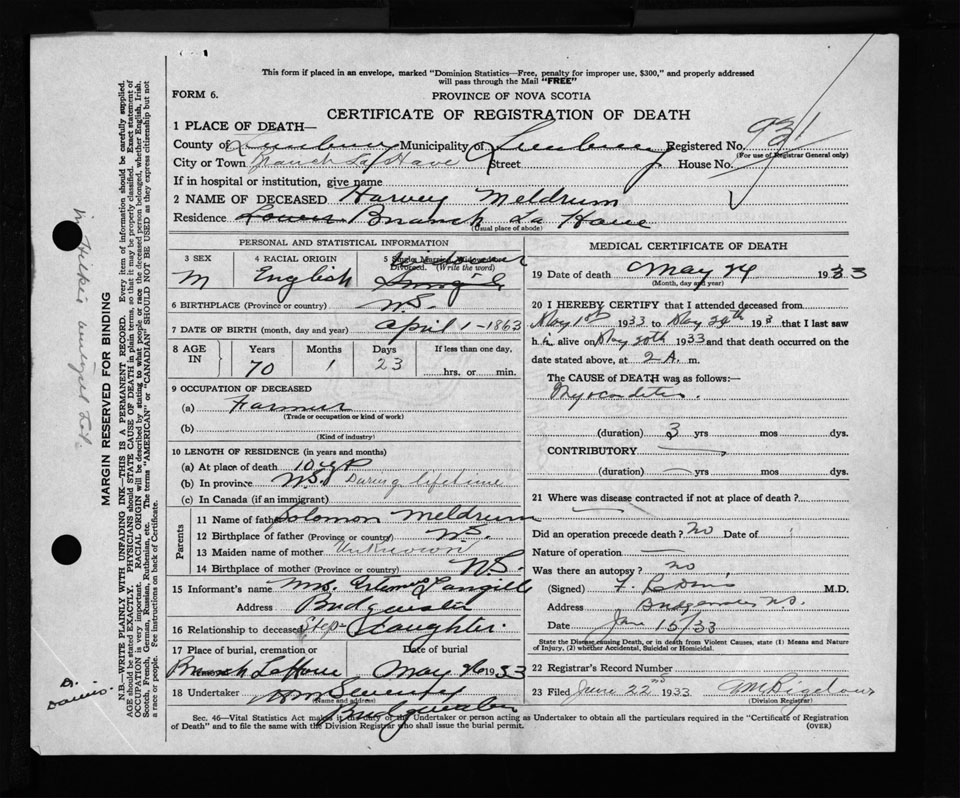 This form if placed in an envelope, marked "Dominion Statistics—Free, penalty for improper use, $300," and properly addressed
will pass through the Mail "FREE"
FORM 6.
PROVINCE OF NOVA SCOTIA
CERTIFICATE OF REGISTRATION OF DEATH
1 PLACE OF DEATH—
County of Lunenburg Municipality of Lunenburg Registered No. 931
(For use of Registrar General only)
City or Town Branch LaHave Street House No.
If in hospital or institution, give name
2 NAME OF DECEASED Harvey Meldrum
Residence Lower Branch La Have
(Usual place of abode)
PERSONAL AND STATISTICAL INFORMATION
3 SEX
M
4 RACIAL ORIGIN
English
5 Single, Married, Widowed or
Divorced. (Write the word)
Widower
Single
6 BIRTHPLACE (Province or country) N.S.
7 DATE OF BIRTH (month, day and year) April 1-1863
8 AGE IN
Years Months Days If less than one day,
70 1 23 hrs. or min.
9 OCCUPATION OF DECEASED
(a) Farmer
(Trade or occupation or kind of work)
(b)
(Kind of industry)
10 LENGTH OF RESIDENCE (in years and months)
(a) At place of death 10 yrs
(b) In province N.S. During lifetime
(c) In Canada (if an immigrant)
Parents
11 Name of father Solomon Meldrum
12 Birthplace of father (Province or country) N.S.
13 Maiden name of mother Unknown
14 Birthplace of mother (Province or country) N.S.
15 Informant's name Mrs. Langille
Address Bridgewater
16 Relationship to deceased Step-Daughter.
17 Place of burial, cremation or
Date of burial
Branch LaHave May 26 1933
18 Undertaker
(Name and address)
Bridgewater
MEDICAL CERTIFICATE OF DEATH
19 Date of death May 24 1933
(Month, day and year)
20 I HEREBY CERTIFY that I attended deceased from
May 1st 1933 to May 24th 193 that I last saw
h alive on May 20th 1933 and that death occurred on the
date stated above, at 2 A. m.
The CAUSE of DEATH was as follows:—
Myocarditis.
(duration) 3 yrs mos dys.
CONTRIBUTORY
(duration) yrs mos dys.
21 Where was disease contracted if not at place of death?
Did an operation precede death? no Date of
Nature of operation
Was there an autopsy? no
(Signed) M.D.
Address Bridgewater N.S.
Date June 15/33
State the Disease causing Death, or in death from Violent Causes, state (1) Means and Nature
of Injury, (2) whether Accidental, Suicidal or Homicidal.
22 Registrar's Record Number
23 Filed June 22nd 1933
(Division Registrar)
Sec. 46—Vital Statistics Act makes it the duty of the Undertaker or person acting as Undertaker to obtain all the particulars required in the "Certificate of Registration
of Death" and to file the same with the Division Registrar who shall issue the burial permit.
(OVER)
MARGIN RESERVED FOR BINDING
N.B.—WRITE PLAINLY WITH UNFADING INK—THIS IS A PERMANENT RECORD. Every item of information should be carefully supplied.
AGE should be stated EXACTLY. PHYSICIANS should STATE CAUSE OF DEATH in plain terms, so that it may be properly classified. Exact statement of
OCCUPATION is very important. RACIAL ORIGIN will be described by stating to what people or race the deceased person belonged, whether English, Irish,
Scotch, French, German, Russian, Ruthenian, etc. The terms "AMERICAN" or "CANADIAN" SHOULD NOT BE USED as they express citizenship but not
a race or people. Fee instructions on back of Certificate.